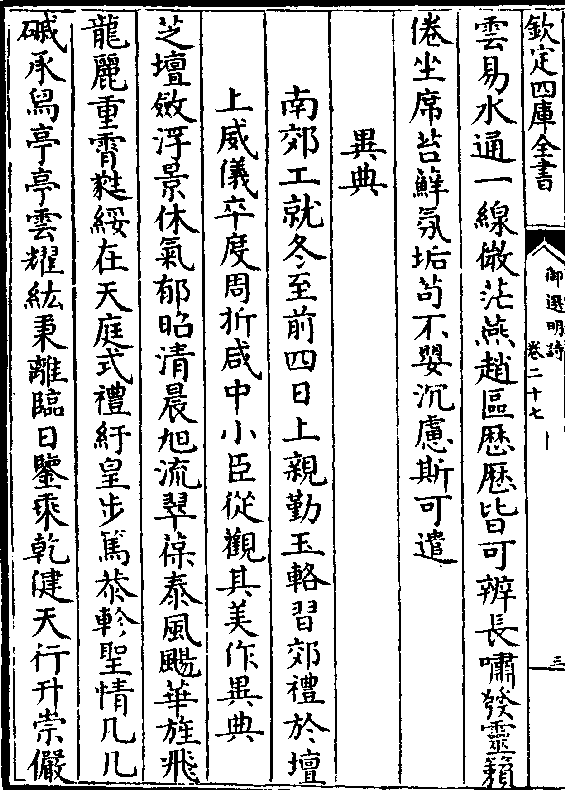 欽定四庫全書
御選明詩
卷二十七
三
雲易水通一線微茫燕趙區歷歷皆可辨長嘯發靈籟
倦坐席苔蘚氛垢苟不嬰沉慮斯可遣
異典
南郊工就冬至前四日上親勤玉輅習郊禮於壇
上威儀卒度周折咸中小臣從觀其美作異典
芝壇斂浮景休氣郁昭清晨旭流翠葆泰風颺華旌飛
龍麗重霄蕤綏在天庭式禮紆皇步篤恭軫聖情几几
墄承舃亭亭雲耀紘秉離臨日鑒乘乾健天行升崇儼